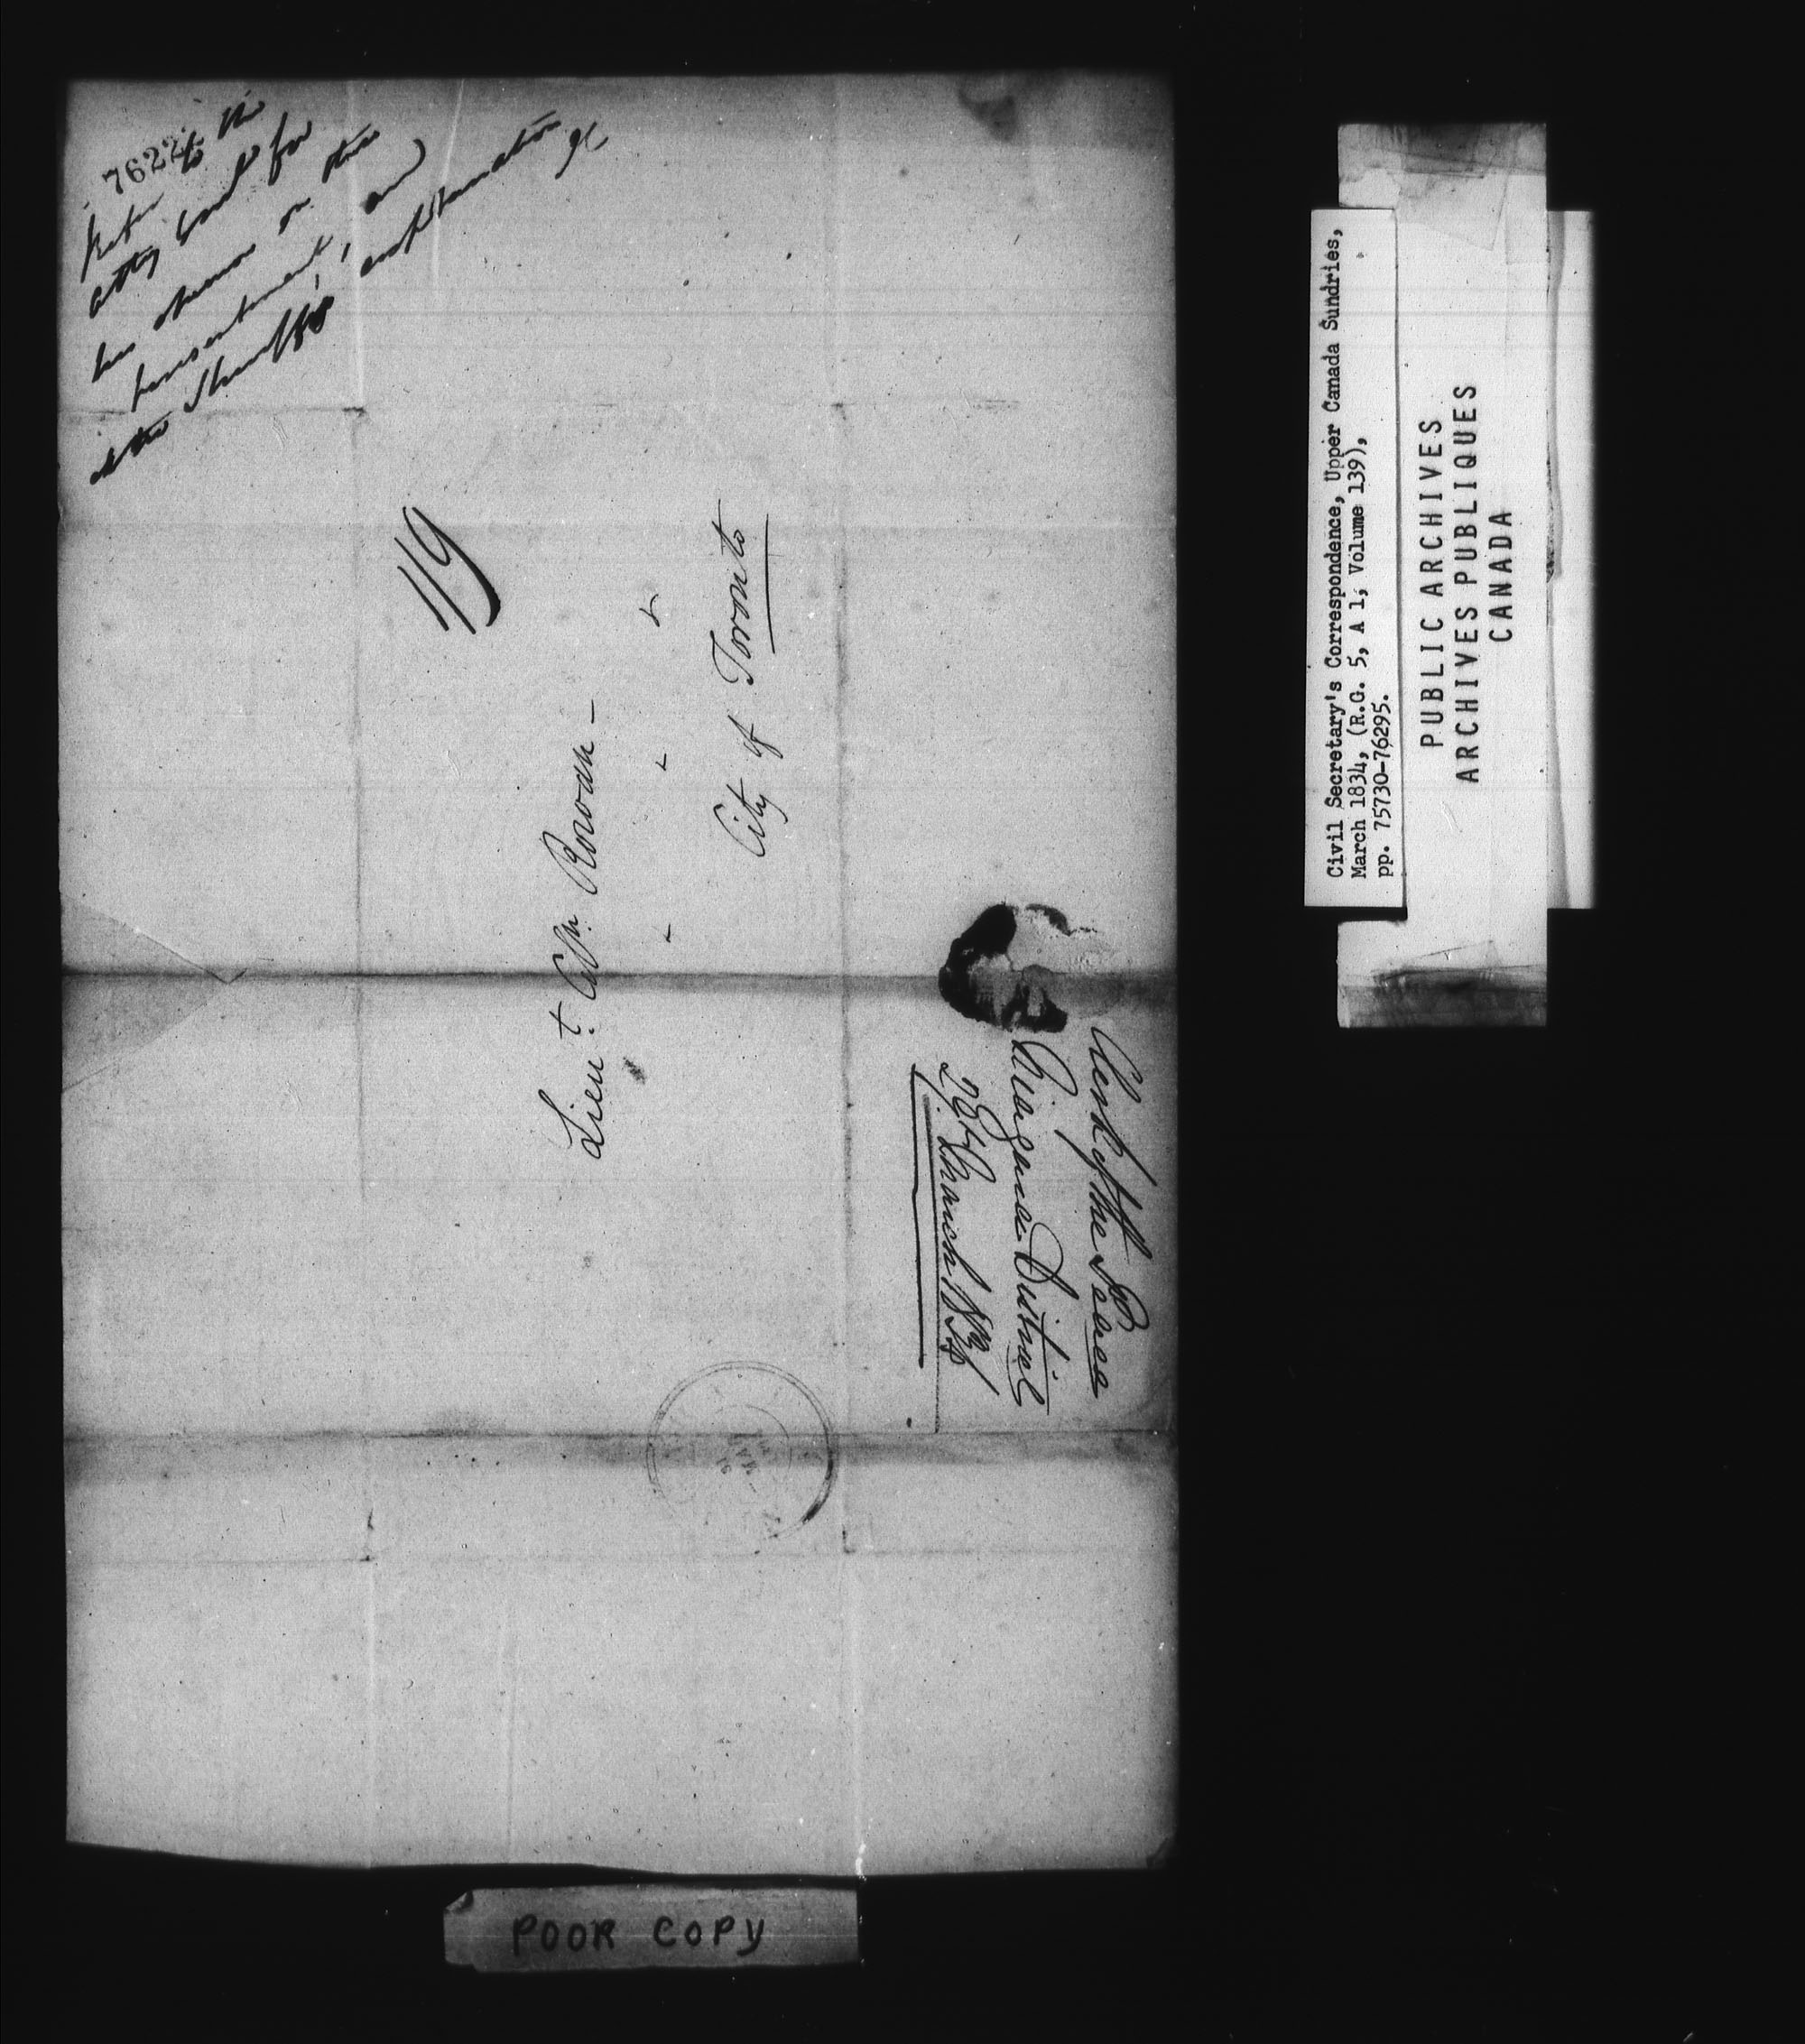 7622
Refer to the
atty Genl for
his opinion on this
presentment, and
also
119
Lieut. Coln. Rowan —
City of Toronto
Clerk of the Peace
Niagara District
28th March 1834
Civil Secretary's Correspondence, Upper Canada Sundries,
March 1834, (R.G. 5, A 1, Volume 139),
pp. 75730-76295.
PUBLIC ARCHIVES
ARCHIVES PUBLIQUES
CANADA
POOR COPY